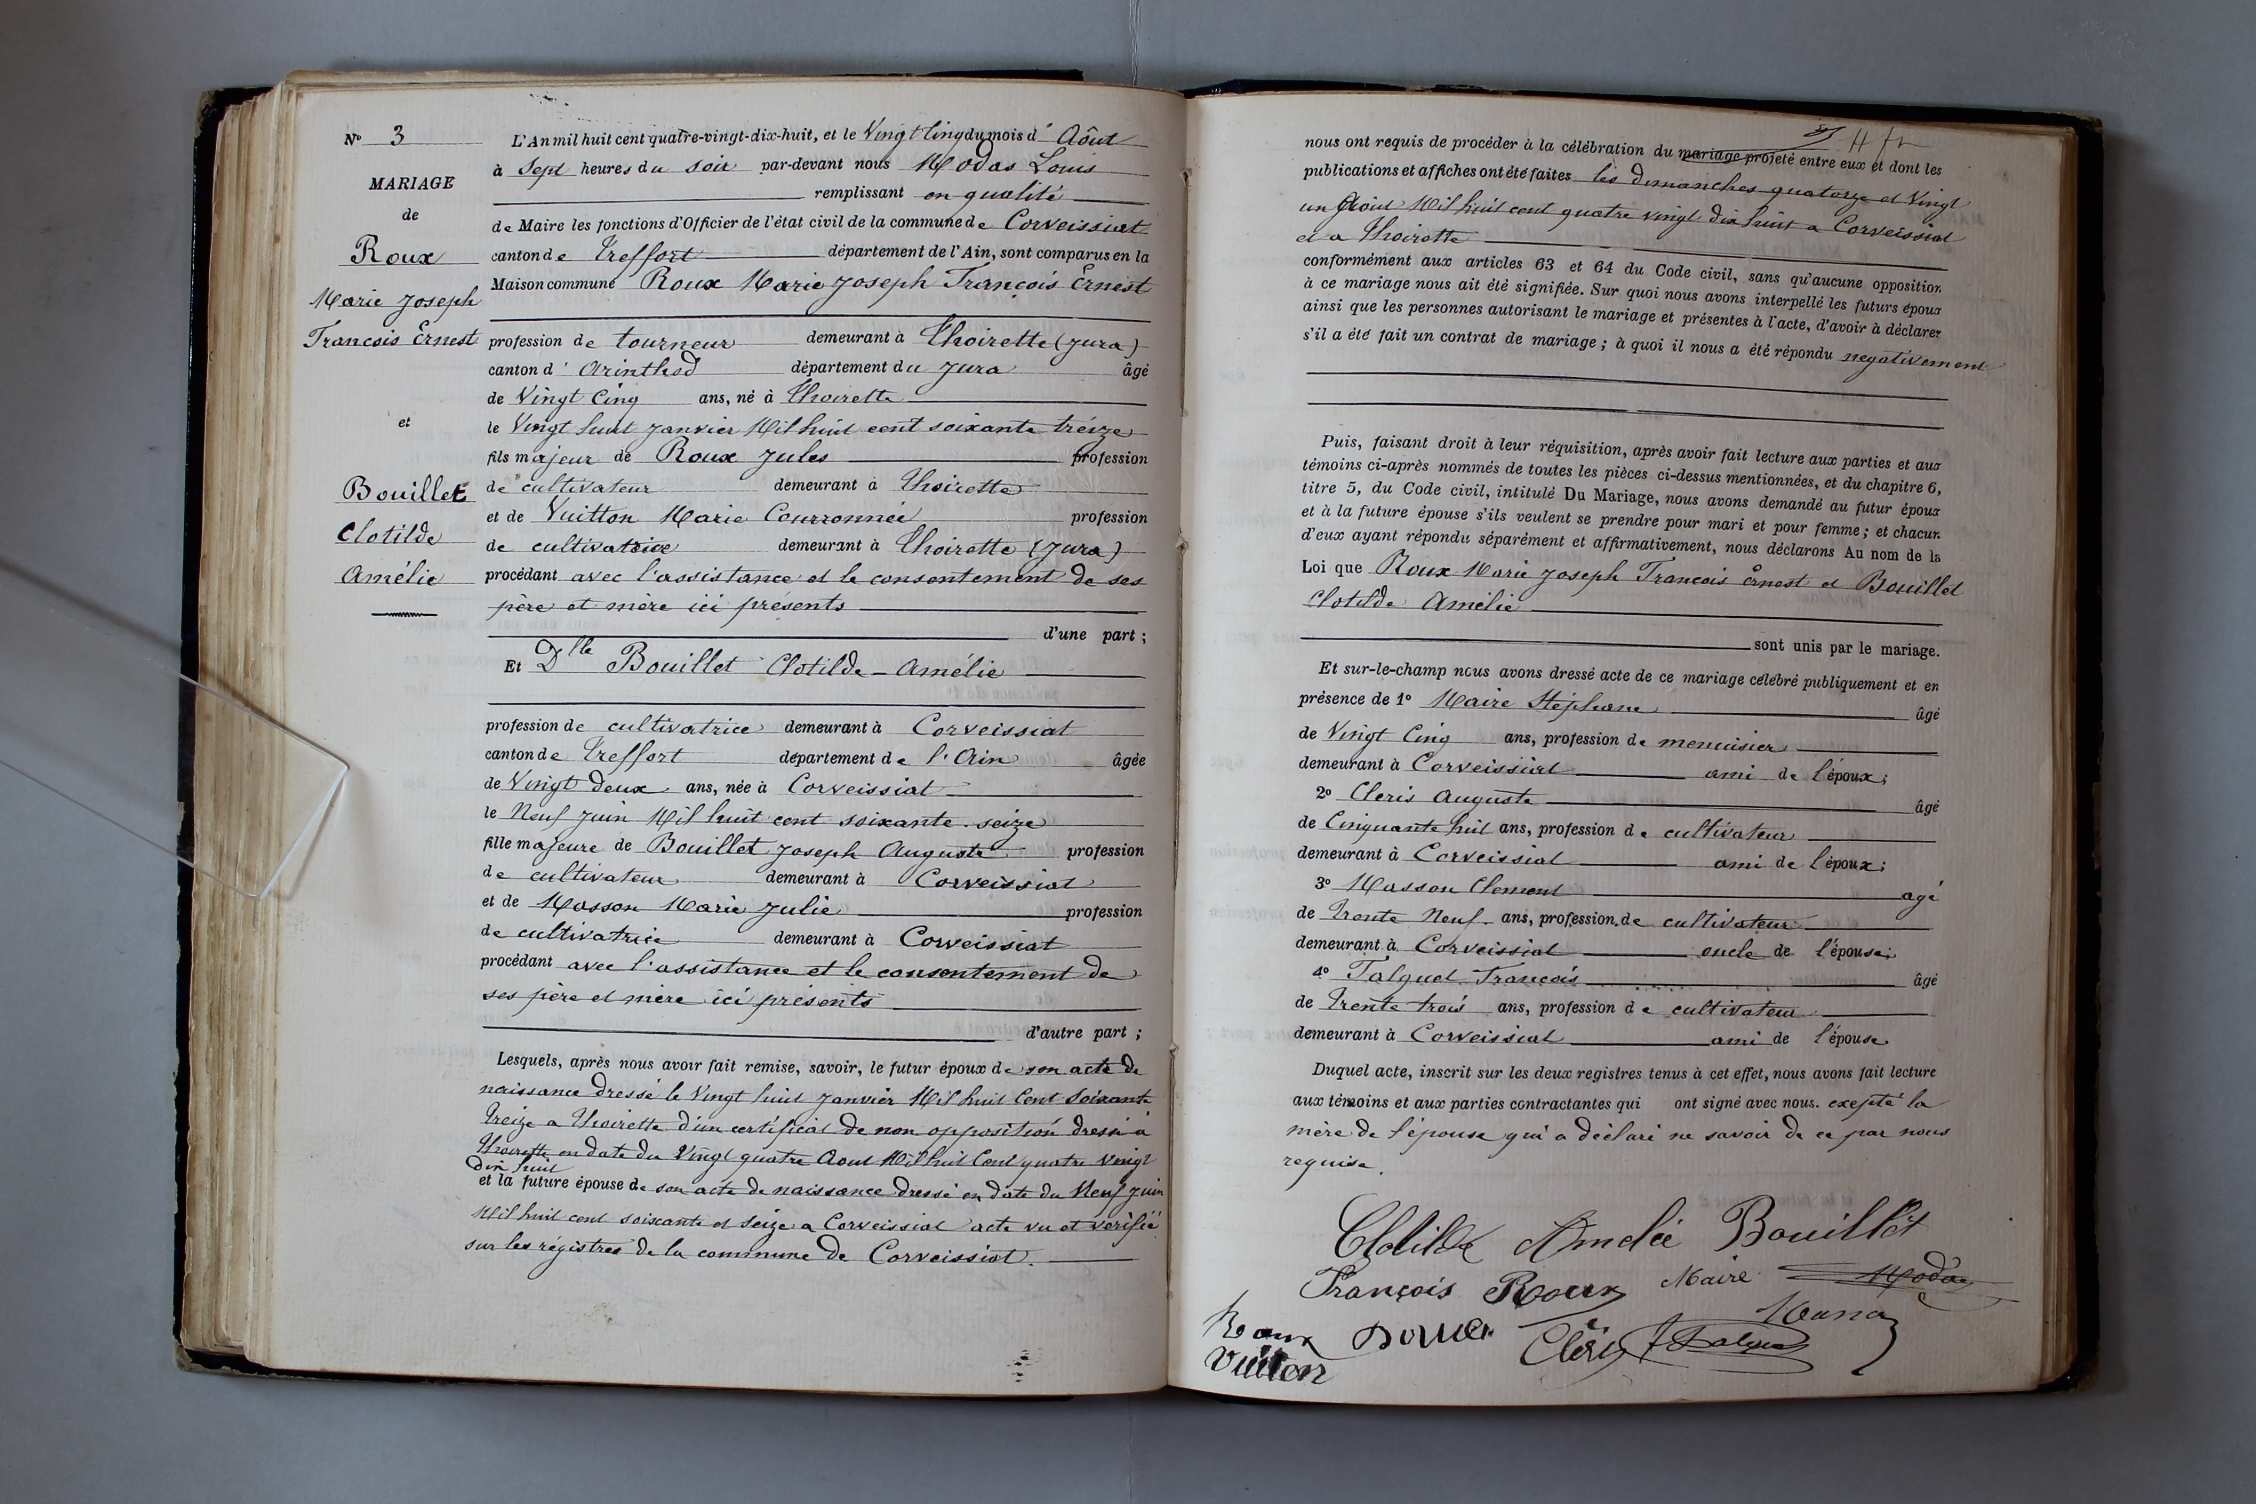 Nº 3
MARIAGE
de
Roux
Marie Joseph
Francois Ernest
et
Bouillet
Clotilde
Amélie
L'An mil huit cent quatre-vingt-dix-huit, et le Vingt Cinq du mois d' Aôut
à Sept heures du soir par-devant nous Modas Louis
remplissant en qualité
de Maire les fonctions d'Officier de l'état civil de la commune de Corveissiat
canton de Treffort département de l'Ain, sont comparus en la
Maison commune Roux Marie Joseph François Ernest
profession de tourneur demeurant à Thoirette (Jura)
canton d' Arinthod département du Jura âgé
de Vingt Cinq ans, né à Thoirette
le Vingt huit Janvier Mil huit cent soixante treize
fils majeur de Roux Jules profession
de cultivateur demeurant à Thoirette
et de Vuitton Marie Couronnée profession
de cultivatrice demeurant à Thoirette (Jura)
procédant avec l'assistance et le consentement de ses
père et mère ici présents
d'une part ;
Et Dlle Bouillet Clotilde - Amélie
profession de cultivatrice demeurant à Corveissiat
canton de Treffort département de l'Ain âgée
de Vingt deux ans, née à Corveissiat
le Neuf Juin Mil huit cent soixante-seize
fille majeure de Bouillet Joseph Auguste profession
de cultivateur demeurant à Corveissiat
et de Masson Marie Julie profession
de cultivatrice demeurant à Corveissiat
procédant avec l'assistance et le consentement de
ses père et mère ici présents
d'autre part ;
Lesquels, après nous avoir fait remise, savoir, le futur époux de son acte de
naissance dressé le Vingt huit Janvier Mil huit Cent Soixante
Treize a Thoirette d'un certificat de non opposition dressé à
Thoirette en date du Vingt quatre Aout Mil huit Cent quatre Vingt
dix huit
et la future épouse de son acte de naissance dressé en date du Neuf Juin
Mil huit cent soixante et seize a Corveissiat acte vu et vérifié
sur les régistres de la commune de Corveissiat.
nous ont requis de procéder à la célébration du mariage projeté entre eux et dont les
publications et affiches ont été faites les dimanches quatorze et Vingt
un Aout Mil huit cent quatre vingt dix huit a Corveissiat
et a Thoirette
conformément aux articles 63 et 64 du Code civil, sans qu'aucune opposition
à ce mariage nous ait été signifiée. Sur quoi nous avons interpellé les futurs époux
ainsi que les personnes autorisant le mariage et présentes à l'acte, d'avoir à déclarer
s'il a été fait un contrat de mariage ; à quoi il nous a été répondu negativement
Puis, faisant droit à leur réquisition, après avoir fait lecture aux parties et aux
témoins ci-après nommés de toutes les pièces ci-dessus mentionnées, et du chapitre 6,
titre 5, du Code civil, intitulé Du Mariage, nous avons demandé au futur époux
et à la future épouse s'ils veulent se prendre pour mari et pour femme ; et chacun
d'eux ayant répondu séparément et affirmativement, nous déclarons Au nom de la
Loi que Roux Marie Joseph Francois Ernest et Bouillet
Clotilde Amélie
sont unis par le mariage.
Et sur-le-champ nous avons dressé acte de ce mariage célébré publiquement et en
présence de 1º Maire Stéphane âgé
de Vingt Cinq ans, profession de menuisier
demeurant à Corveissiat ami de l'époux ;
2º Cleris Auguste âgé
de Cinquante huit ans, profession de cultivateur
demeurant à Corveissiat ami de l'époux ;
3º Masson Clement agé
de Trente Neuf ans, profession de cultivateur
demeurant à Corveissiat oncle de l'épouse ;
4º Falquet François âgé
de Trente trois ans, profession de cultivateur
demeurant à Corveissiat ami de l'épouse
Duquel acte, inscrit sur les deux registres tenus à cet effet, nous avons fait lecture
aux témoins et aux parties contractantes qui ont signé avec nous. exepté la
mère de l'épouse qui a déclaré ne savoir de ce par nous
requise.
Clotilde Amelie Bouillet
François Roux Maire Modas
Roux
Vuitton